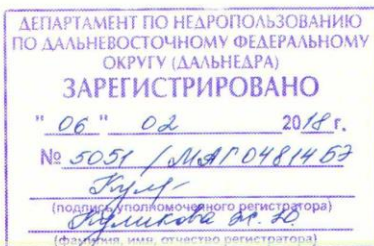 ДЕПАРТАМЕНТ ПО НЕДРОПОЛЬЗОВАНИЮ
ПО ДАЛЬНЕВОСТОЧНОМУ ФЕДЕРАЛЬНОМУ
ОКРУГУ (ДАЛЬНЕДРА)
ЗАРЕГИСТРИРОВАНО
"06" 02 2018 г.
№ 5051 / МАГ 04814 БЭ
(подпись уполномоченного регистратора)
Куликова Ж. Ю
(фамилия, имя, отчество регистратора)